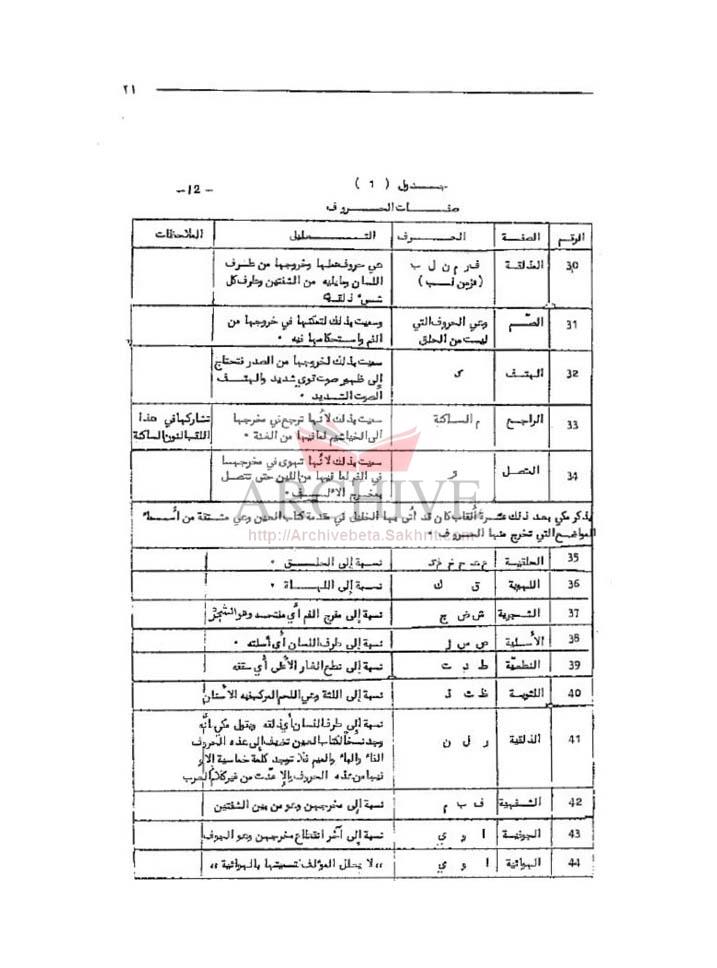 ٢١
-12-
جدول ( ٦ )
صفات الحروف
الرقم الصفة الحرف التعليل الملاحظات
30 المذلقة ف ر م ن ل ب هي حروف عملها وخروجها من طرف
(فر من لب) اللسان وما يليه من الشفتين وطرف كل
شيء ذلقه
31 الصّم وهي الحروف التي وسميت بذلك لتمكنها في خروجها من
ليست من الحلق الفم واستحكامها فيه .
32 الهتف سميت بذلك لخروجها من الصدر فتحتاج
إلى ظهور صوت قوي شديد والهتف
الصوت الشديد .
33 الراجع م الساكنة سميت بذلك لأنها ترجع في مخرجها تشاركها في هذا
الى الخياشيم لما فيها من الغنة . اللقب النون الساكنة
34 المتصل و سميت بذلك لأنها تهوى في مخرجها
في الفم لما فيها من اللين حتى تتصل
بمخرج الألف .
ARCHIVE
http://Archivebeta.Sakhrit.com
يذكر مكي بعد ذلك عشرة ألقاب كان قد أتى بها الخليل في مقدمة كتاب العين وهي مشتقة من أسماء
المواضع التي تخرج منها الحروف .
35 الحلقية نسبة إلى الحلق .
36 اللهوية ق ك نسبة إلى اللهاة .
37 الشجرية ش ض ج نسبة إلى مفرج الفم أي مفتحه وهو الشجر
38 الأسلية ص س ز نسبة إلى طرف اللسان أي أسلته .
39 النطعية ط د ت نسبة إلى نطع الغار الأعلى أي سقفه
40 اللثوية ظ ث ذ نسبة إلى اللثة وهي اللحم المركب فيه الأسنان
41 الذلقية ر ل ن نسبة إلى طرف اللسان أي ذلقه ويقول مكي أنّه
وجد نسخاً لكتاب العين تضيف إلى هذه الحروف
الفاء والباء والميم فلا توجد كلمة خماسية إلا و
فيها من هذه الحروف وإلا عدّت من غير كلام العرب
42 الشفهية ف ب م نسبة إلى مخرجهن وهو من بين الشفتين
43 الجوفية ا و ي نسبة إلى آخر انقطاع مخرجهن وهو الجوف
44 الهوائية ا و ي ،، لا يعلل المؤلف تسميتها بالهوائية ،،